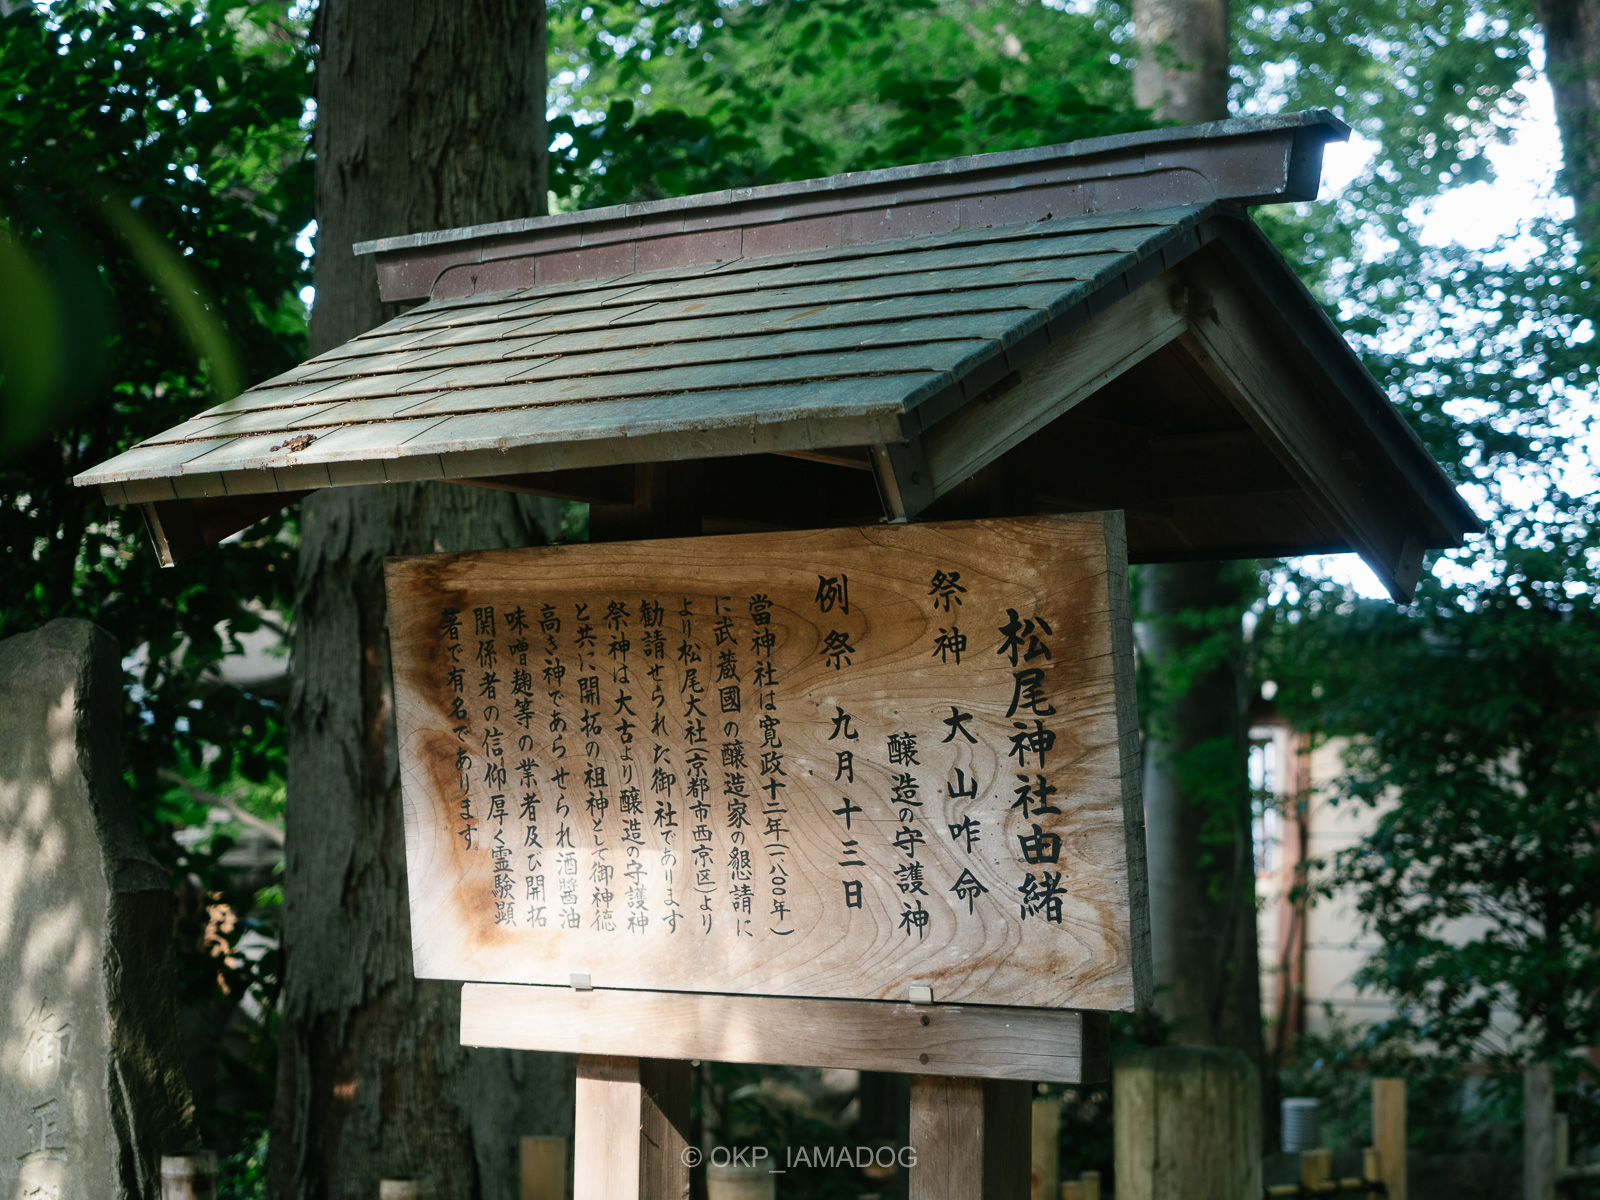 松尾神社由緒
祭神 大山咋命
醸造の守護神
例祭 九月十三日
當神社は寛政十二年(一八〇〇年)
に武蔵國の醸造家の懇請に
より松尾大社(京都市西京区)より
勧請せられた御社であります
祭神は大古より醸造の守護神
と共に開拓の祖神として御神徳
高き神であらせられ酒醤油
味噌麹等の業者及び開拓
関係者の信仰厚く霊験顕
著で有名であります
御正
© OKP_IAMADOG